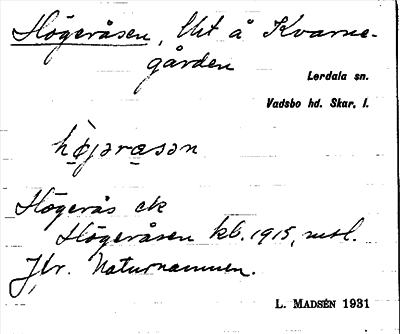 Högeråsen, Ut å Kvarne-
gården
Lerdala sn.
Vadsbo hd. Skar. l.
Högerås ek
Högeråsen kb. 1915,
Jfr. Naturnamnen.
L. MADSÉN 1931